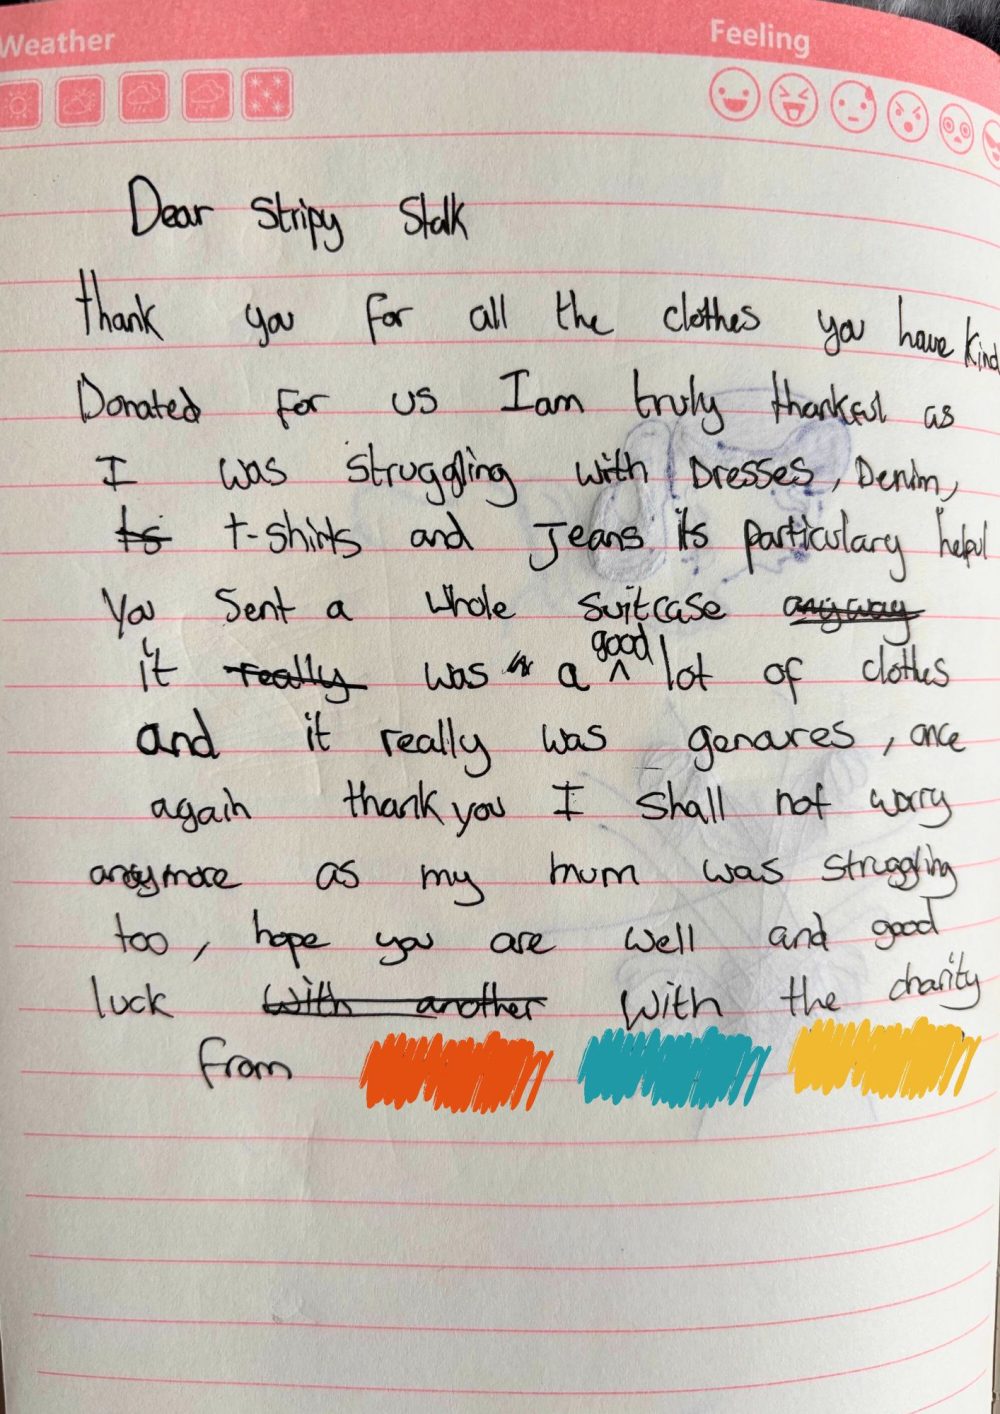 Weather Feeling
Dear Stripy Stalk
thank you for all the clothes you have kind
Donated for us I am truly thankful as
I was struggling with Dresses, Denim,
ts t-shirts and Jeans its particulary helpul
You Sent a whole suitcase anyway
it really was a good lot of clothes
and it really was genoures, once
again thank you I shall not worry
anymore as my mum was struggling
too, hope you are well and good
luck with another with the charity
from